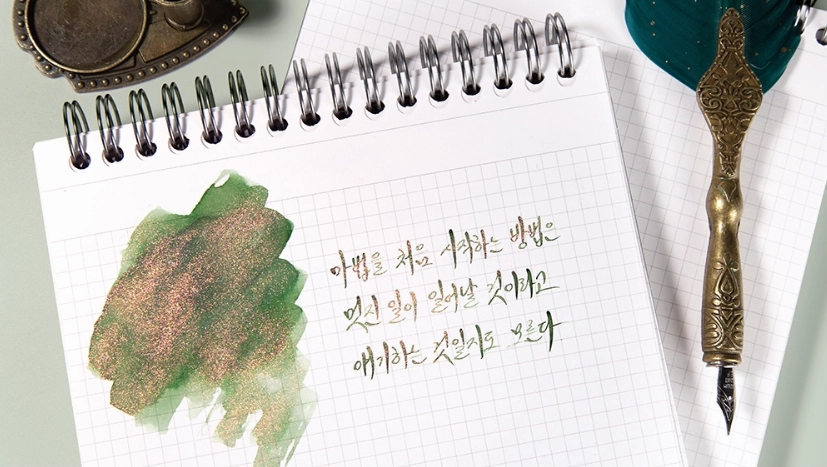 마법을 처음 시작하는 방법은
멋진 일이 일어날 것이라고
얘기하는 것일지도 모른다